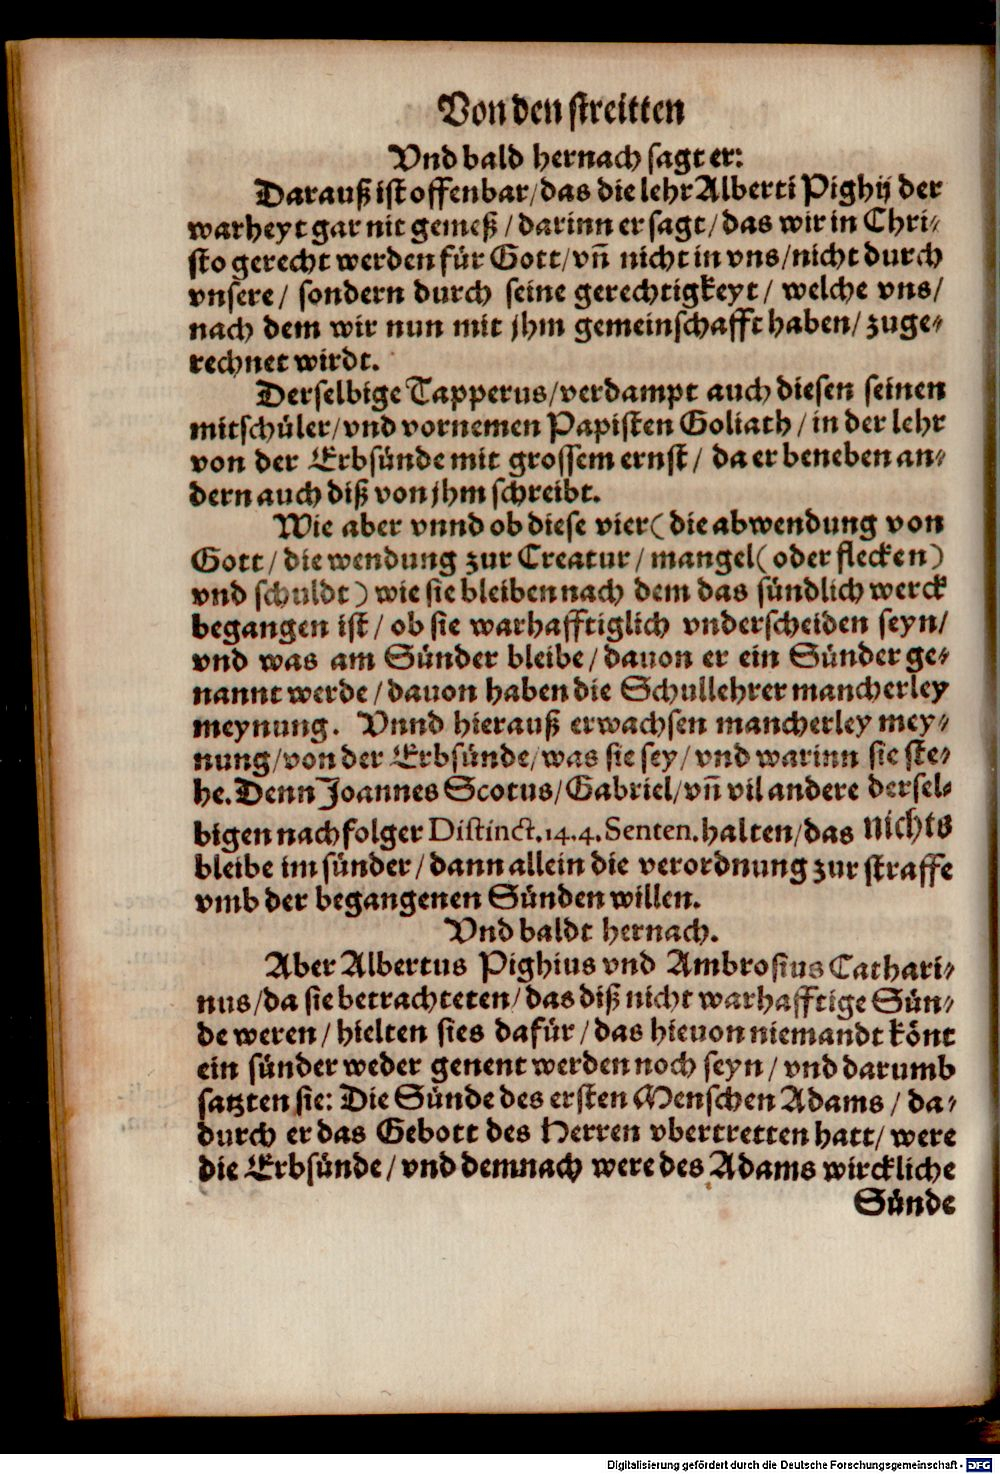 Von den streitten
Vnd bald hernach sagt er:
Darauß ist offenbar/das die lehr Alberti Pighij der
warheyt gar nit gemeß/darinn er sagt/das wir in Chri-
sto gerecht werden für Gott/vñ nicht in vns/nicht durch
vnsere/ sondern durch seine gerechtigkeyt/ welche vns/
nach dem wir nun mit jhm gemeinschafft haben/ zuge-
rechnet wirdt.
Derselbige Tapperus/verdampt auch diesen seinen
mitschüler/vnd vornemen Papisten Goliath/in der lehr
von der Erbsünde mit grossem ernst/ da er beneben an-
dern auch diß von jhm schreibt.
Wie aber vnnd ob diese vier (die abwendung von
Gott/die wendung zur Creatur/mangel (oder flecken)
vnd schuldt) wie sie bleiben nach dem das sündlich werck
begangen ist/ob sie warhafftiglich vnderscheiden seyn/
vnd was am Sünder bleibe/dauon er ein Sünder ge-
nannt werde/dauon haben die Schullehrer mancherley
meynung. Vnnd hierauß erwachsen mancherley mey-
nung/von der Erbsünde/was sie sey/vnd warinn sie ste-
he. Denn Joannes Scotus/Gabriel/vñ vil andere dersel-
bigen nachfolger Distinct.14.4.Senten.halten/das nichts
bleibe im sünder/dann allein die verordnung zur straffe
vmb der begangenen Sünden willen.
Vnd baldt hernach.
Aber Albertus Pighius vnd Ambrosius Cathari-
nus/da sie betrachteten/das diß nicht warhafftige Sün-
de weren/hielten sies dafür/das hieuon niemandt könt
ein sünder weder genent werden noch seyn/vnd darumb
satzten sie: Die Sünde des ersten Menschen Adams/da-
durch er das Gebott des Herren vbertretten hatt/were
die Erbsünde/vnd demnach were des Adams wirckliche
Sünde
Digitalisierung gefördert durch die Deutsche Forschungsgemeinschaft - DFG